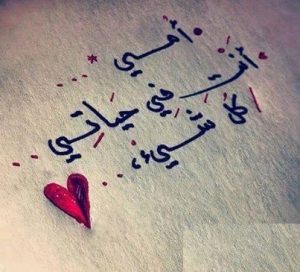 أمي أنتِ
كل شيء في حياتي